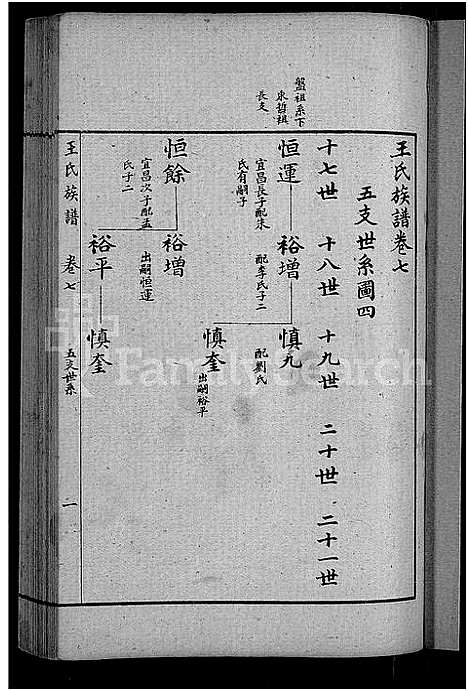 王氏族譜卷七
五支世系圖四
十七世 十八世 十九世 二十世 二十一世
盤祖系下
東哲祖
長支
恒運
宜昌長子配朱
氏有嗣子
裕增
配李氏子二
慎九
配劉氏
慎奎
出嗣裕平
恒餘
宜昌次子配孟
氏子二
裕增
出嗣恒運
裕平
慎奎
王氏族譜 卷七 五支世系 一
FamilySearch